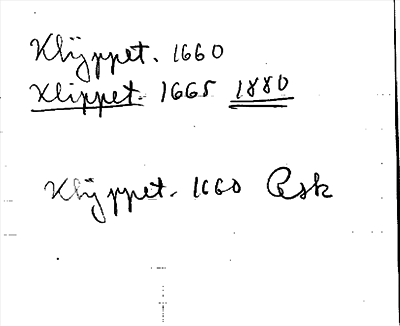 Klÿppet. 1660
Klippet. 1665 1880
Klÿppet. 1660 Ask